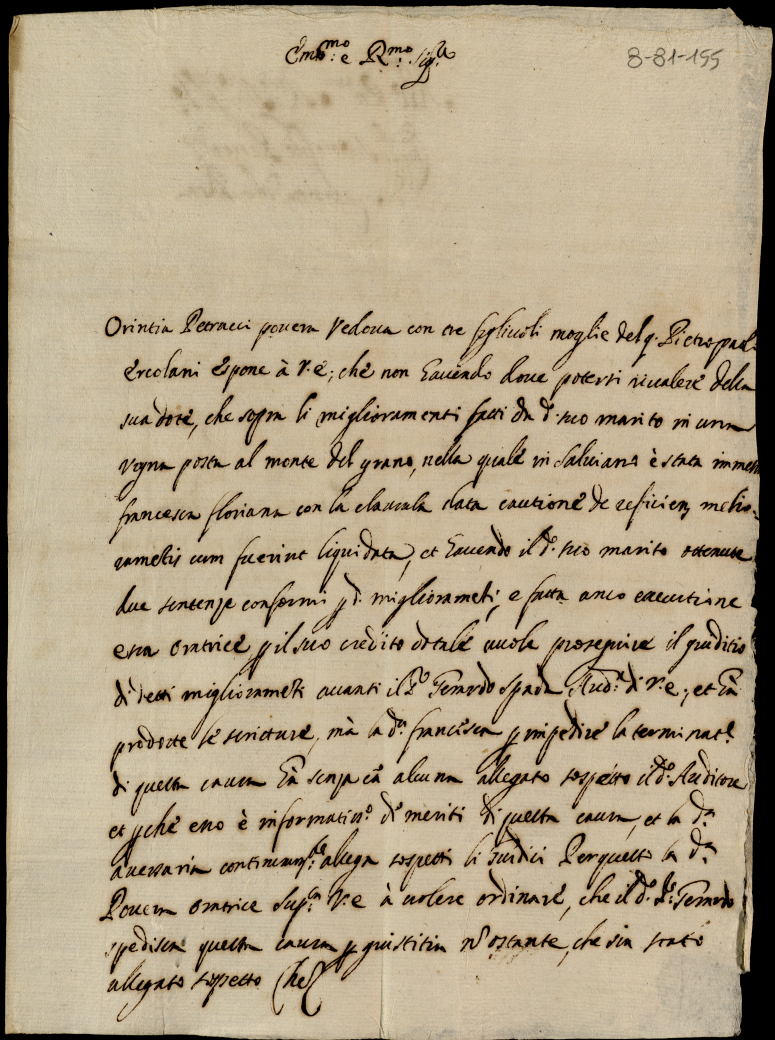 Em:mo e R:mo Sig:re
8-81-155
Orintia Petracci povera Vedova con tre figlivoli moglie del q. Pietropaol
Ercolani espone à V. E; che non havendo dove potersi rivalere della
sua dote, che sopra li miglioramenti fatti da d.o suo marito in una
vigna posta al monte del grano, nella quale in Salviano è stata immessa
francesca floriana con la clausula data cautione de reficien. melio-
rametis cum fuerint liquidata, et havendo il d.o suo marito ottenute
due sentenze conformi p d.i migliorameti, e fatta anco executione
essa oratrice p il suo credito dotale vuole proseguire il giuditio
di detti migliorameti avanti il Temudo Spada Aud.re di V. E., et hà
prodotte le scritture, mà la d.a francesca p impedire la terminat.e
di questa causa hà senza cã alcuna allegato sospetto il d.o Auditore
et pche esso è informatiss.o de meriti di questa causa, et la d.a
aversaria allega sospetti li Giudici Per questo la d.a
Povera oratrice sup.ca V. E à volere ordinare, che il d.o Temudo
spedisca questa causa p giustitia nõ ostante, che sia stato
allegato sospetto Che